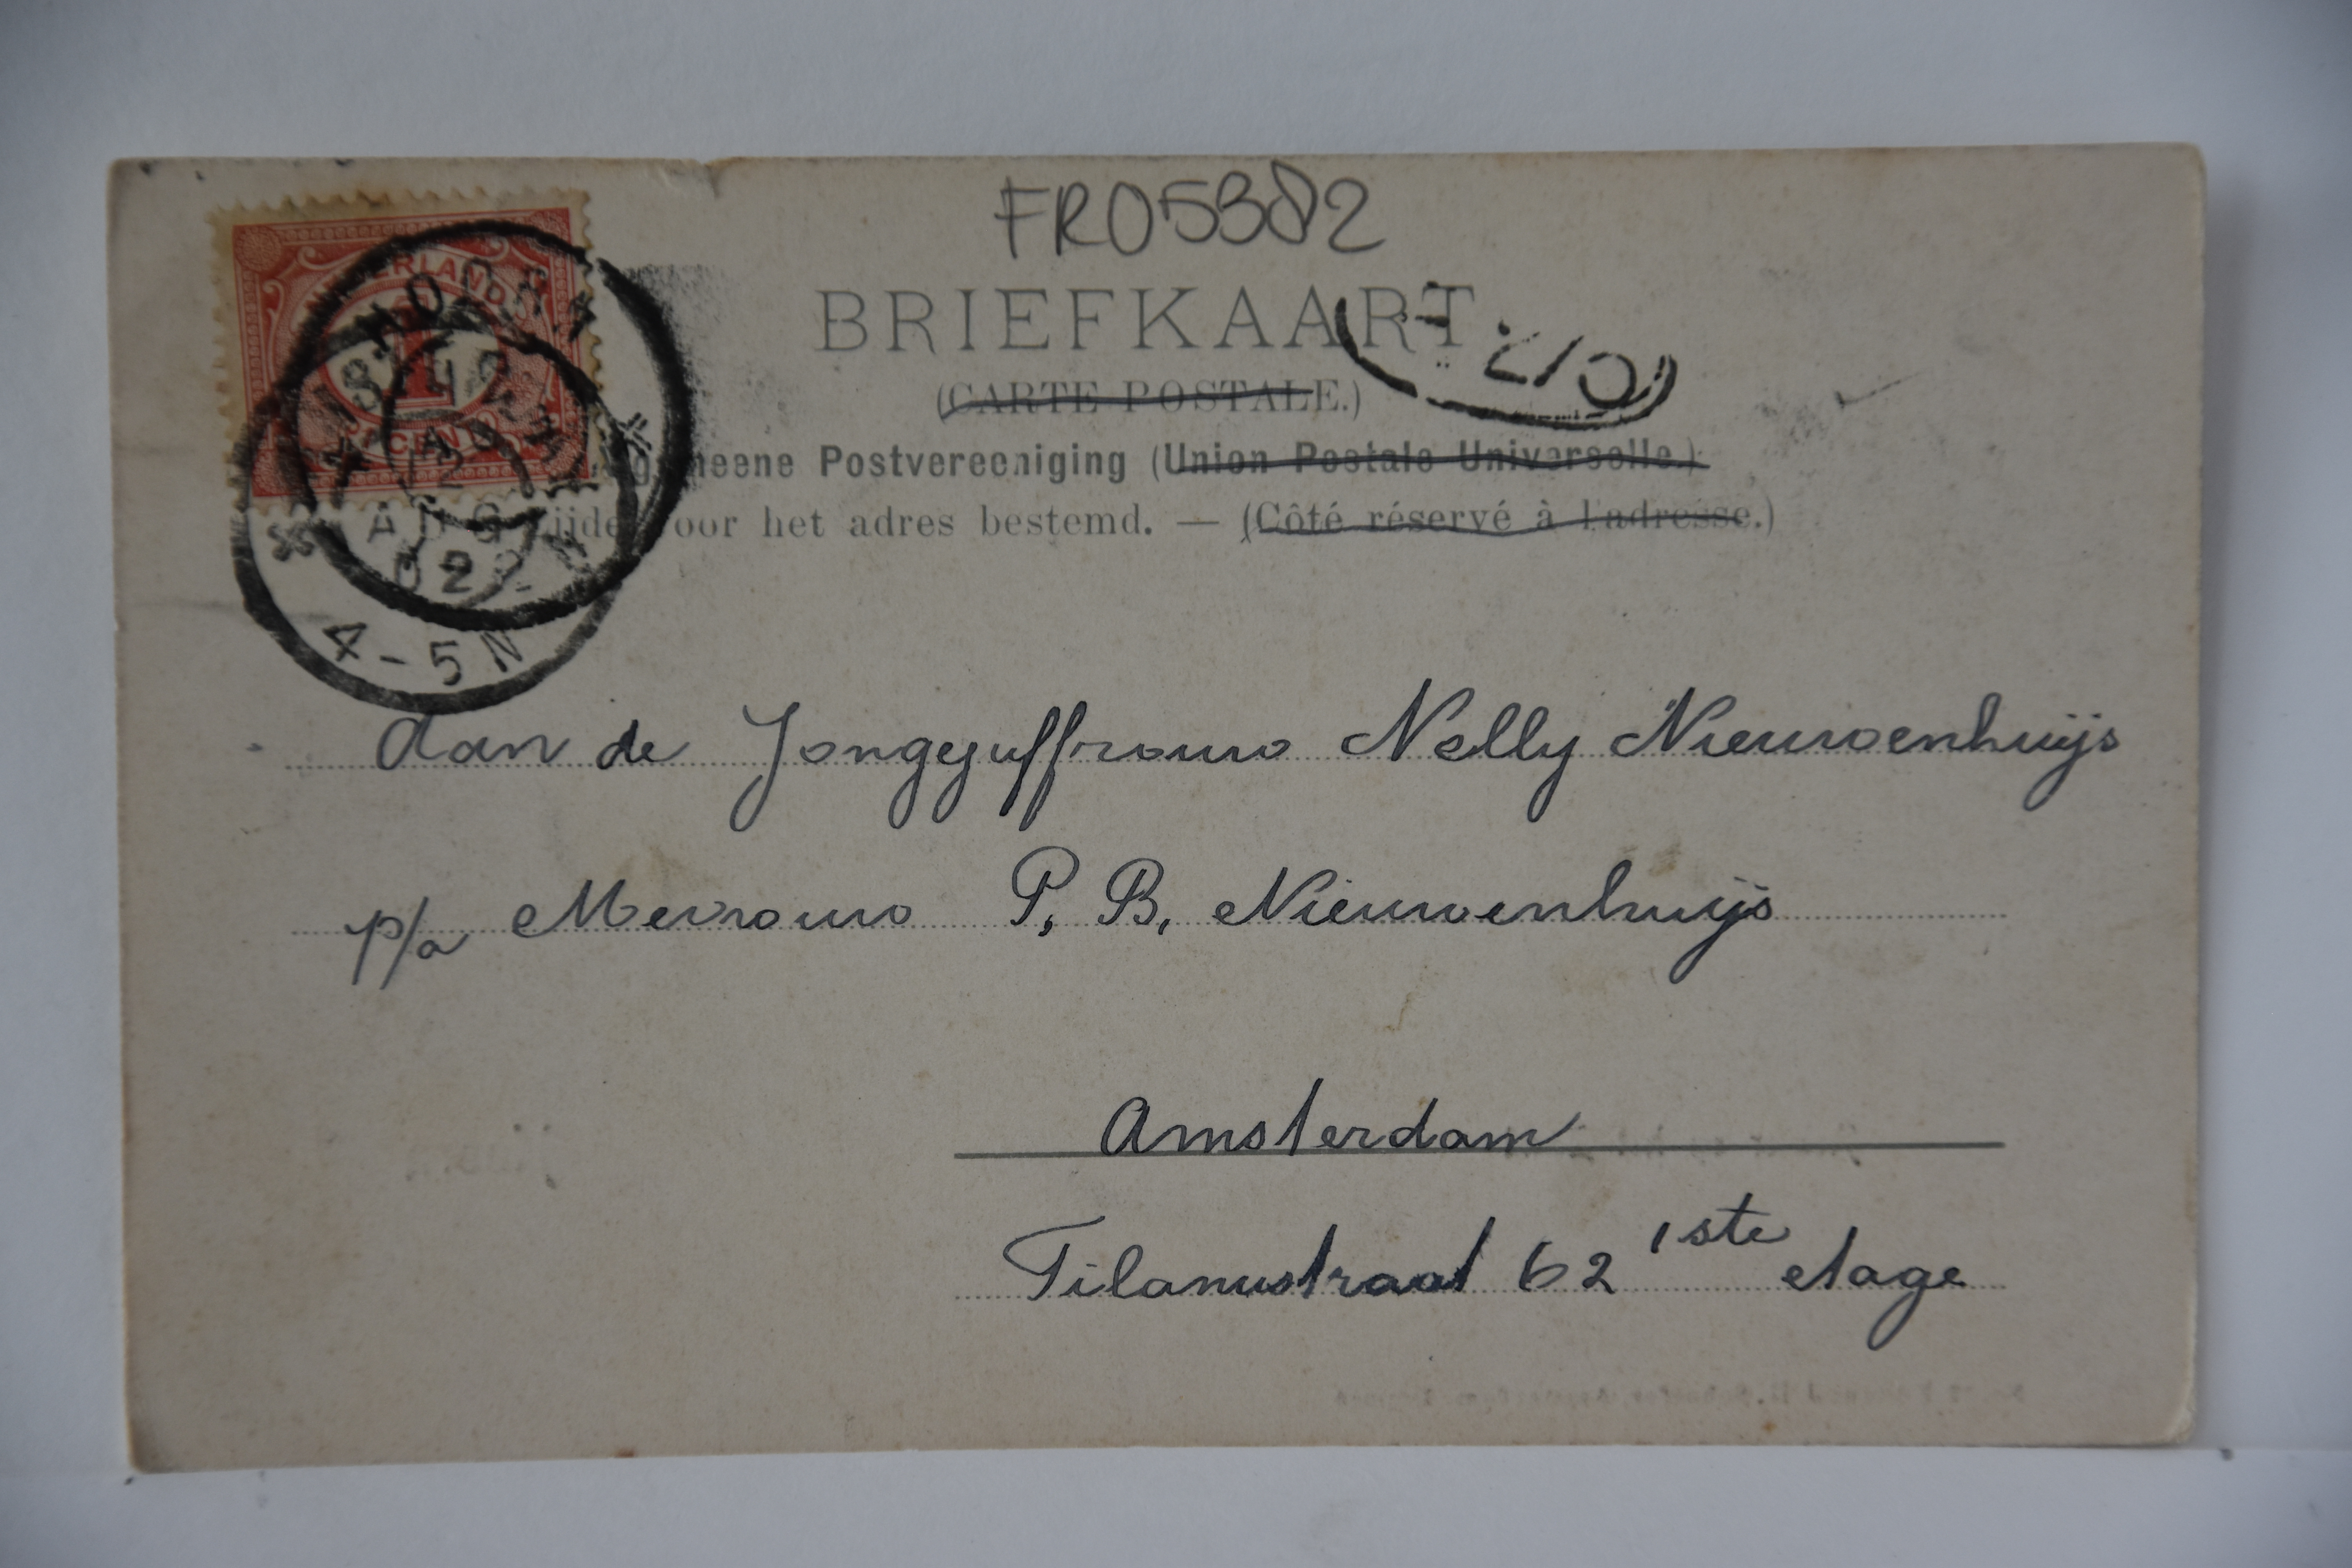 FR05382
BRIEFKAART
(CARTE POSTALE.)
Postvereeniging (Union Postale Universelle.)
het adres bestemd. — (Côté réservé à l'adresse.)
1
CENT
AUG
02
4-5N
Aan de Jongejuffrouw Nelly Nieuwenhuijs
p/a Mevrouw P. B. Nieuwenhuijs
Amsterdam
Tilanusstraat 62 1ste etage